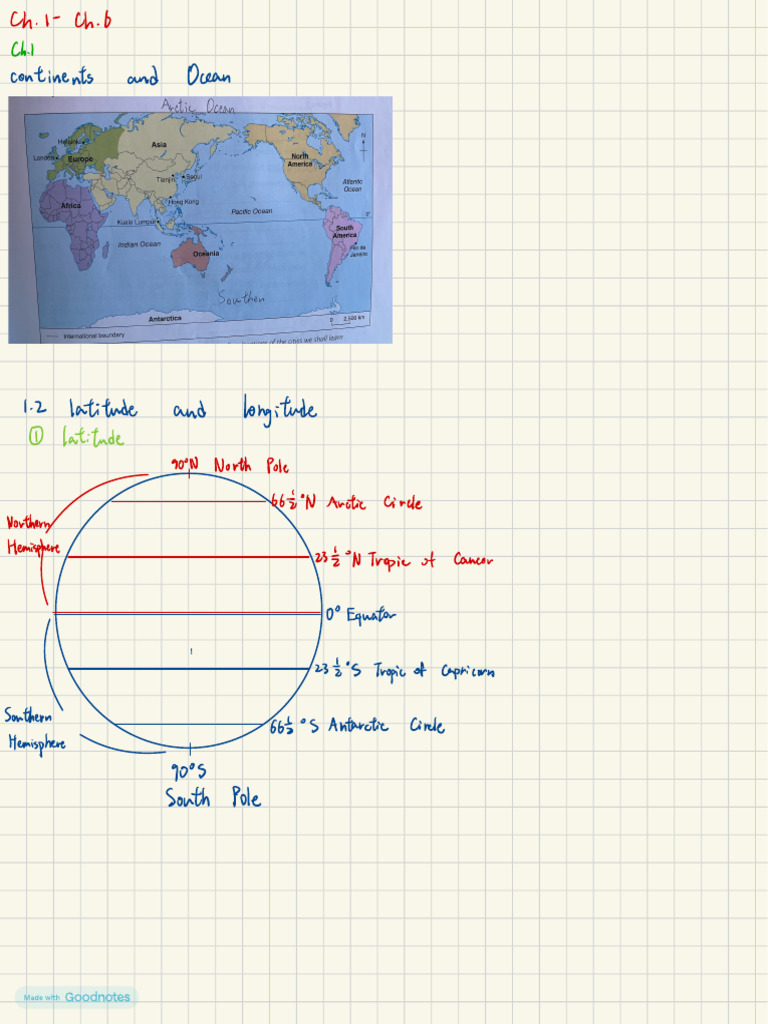 Ch.1- Ch.6
Ch.1
continents and Ocean
Arctic Ocean
Helsinki
London
Europe
Asia
North America
N
Tianjin
Seoul
Atlantic Ocean
Africa
Hong Kong
Pacific Ocean
0°
Kuala Lumpur
South America
Indian Ocean
Oceania
Rio de Janeiro
Southen
Antarctica
0 2,500 km
International boundary
of the cities we shall learn
1.2 latitude and longitude
① latitude
90°N North Pole
66½°N Arctic Circle
Northern Hemisphere
23½°N Tropic of Cancer
0° Equator
23½°S Tropic of Capricorn
Southern Hemisphere
66½°S Antarctic Circle
90°S
South Pole
Made with Goodnotes